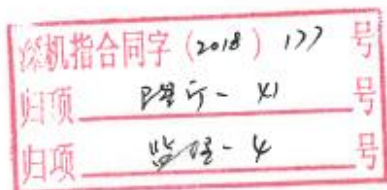 机指合同字(2018)177号
归项 - X1 号
归项 监理-4 号